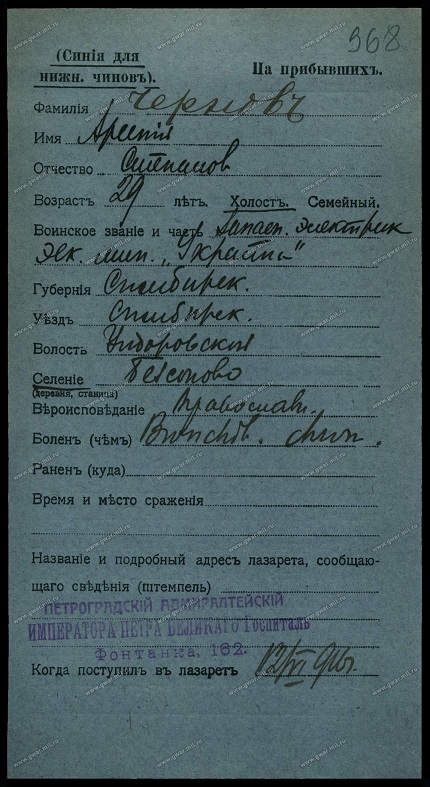 968
(Синія для
нижн. чиновъ).
На прибывшихъ.
Фамилія Черновъ
Имя Арсеній
Отчество Степанов
Возрастъ 29 лѣтъ. Холостъ. Семейный.
Воинское званіе и часть запасн. электрик
эск. мин. „Украйна"
Губернія Симбирск.
Уѣздъ Симбирск.
Волость
Селеніе
(деревня, станица)
Вѣроисповѣданіе Православн.
Боленъ (чѣмъ) Bronchit. chron.
Раненъ (куда)
Время и мѣсто сраженія
Названіе и подробный адресъ лазарета, сообщаю-
щаго свѣдѣнія (штемпель)
ПЕТРОГРАДСКІЙ АДМИРАЛТЕЙСКІЙ
ИМПЕРАТОРА ПЕТРА ВЕЛИКАГО Госпиталь
Фонтанка, 162.
Когда поступилъ въ лазаретъ 12/VI 916.
www.gwar.mil.ru